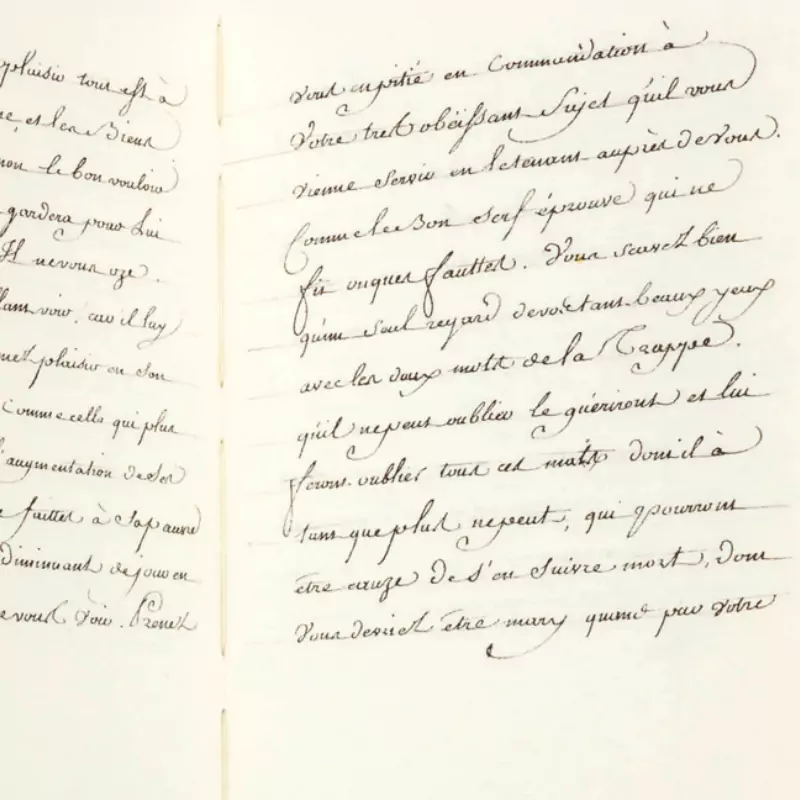 plaisir tout est à
et les Biens
non le bon vouloir
gardera pour Lui
Il ne vous oze.
voir, car il luy
plaisir en son
comme celle qui plus
l'augmentation de ses
faittes à sa pauvre
diminuant de jour en
vous voir. Prenez
vous en pitié en Commendation à
Votre tres obéissant Sujet qu'il vous
vienne servir en le tenant auprès de vous.
Comme le Bon serf éprouvé qui ne
fit onques fauttes. Vous scavez bien
qu'un seul regard de vos tant beaux yeux
avec les doux mots de la Trappe.
qu'il ne peut oublier le guériront et lui
feront oublier tous ces maux dont il à
tant que plus ne peut, qui pourront
être cauze de s'en suivre mort, dont
Vous devriez être mary quand par votre